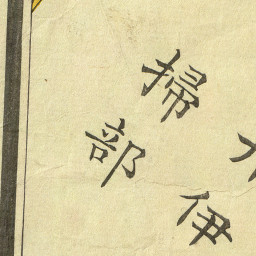 掃部
伊